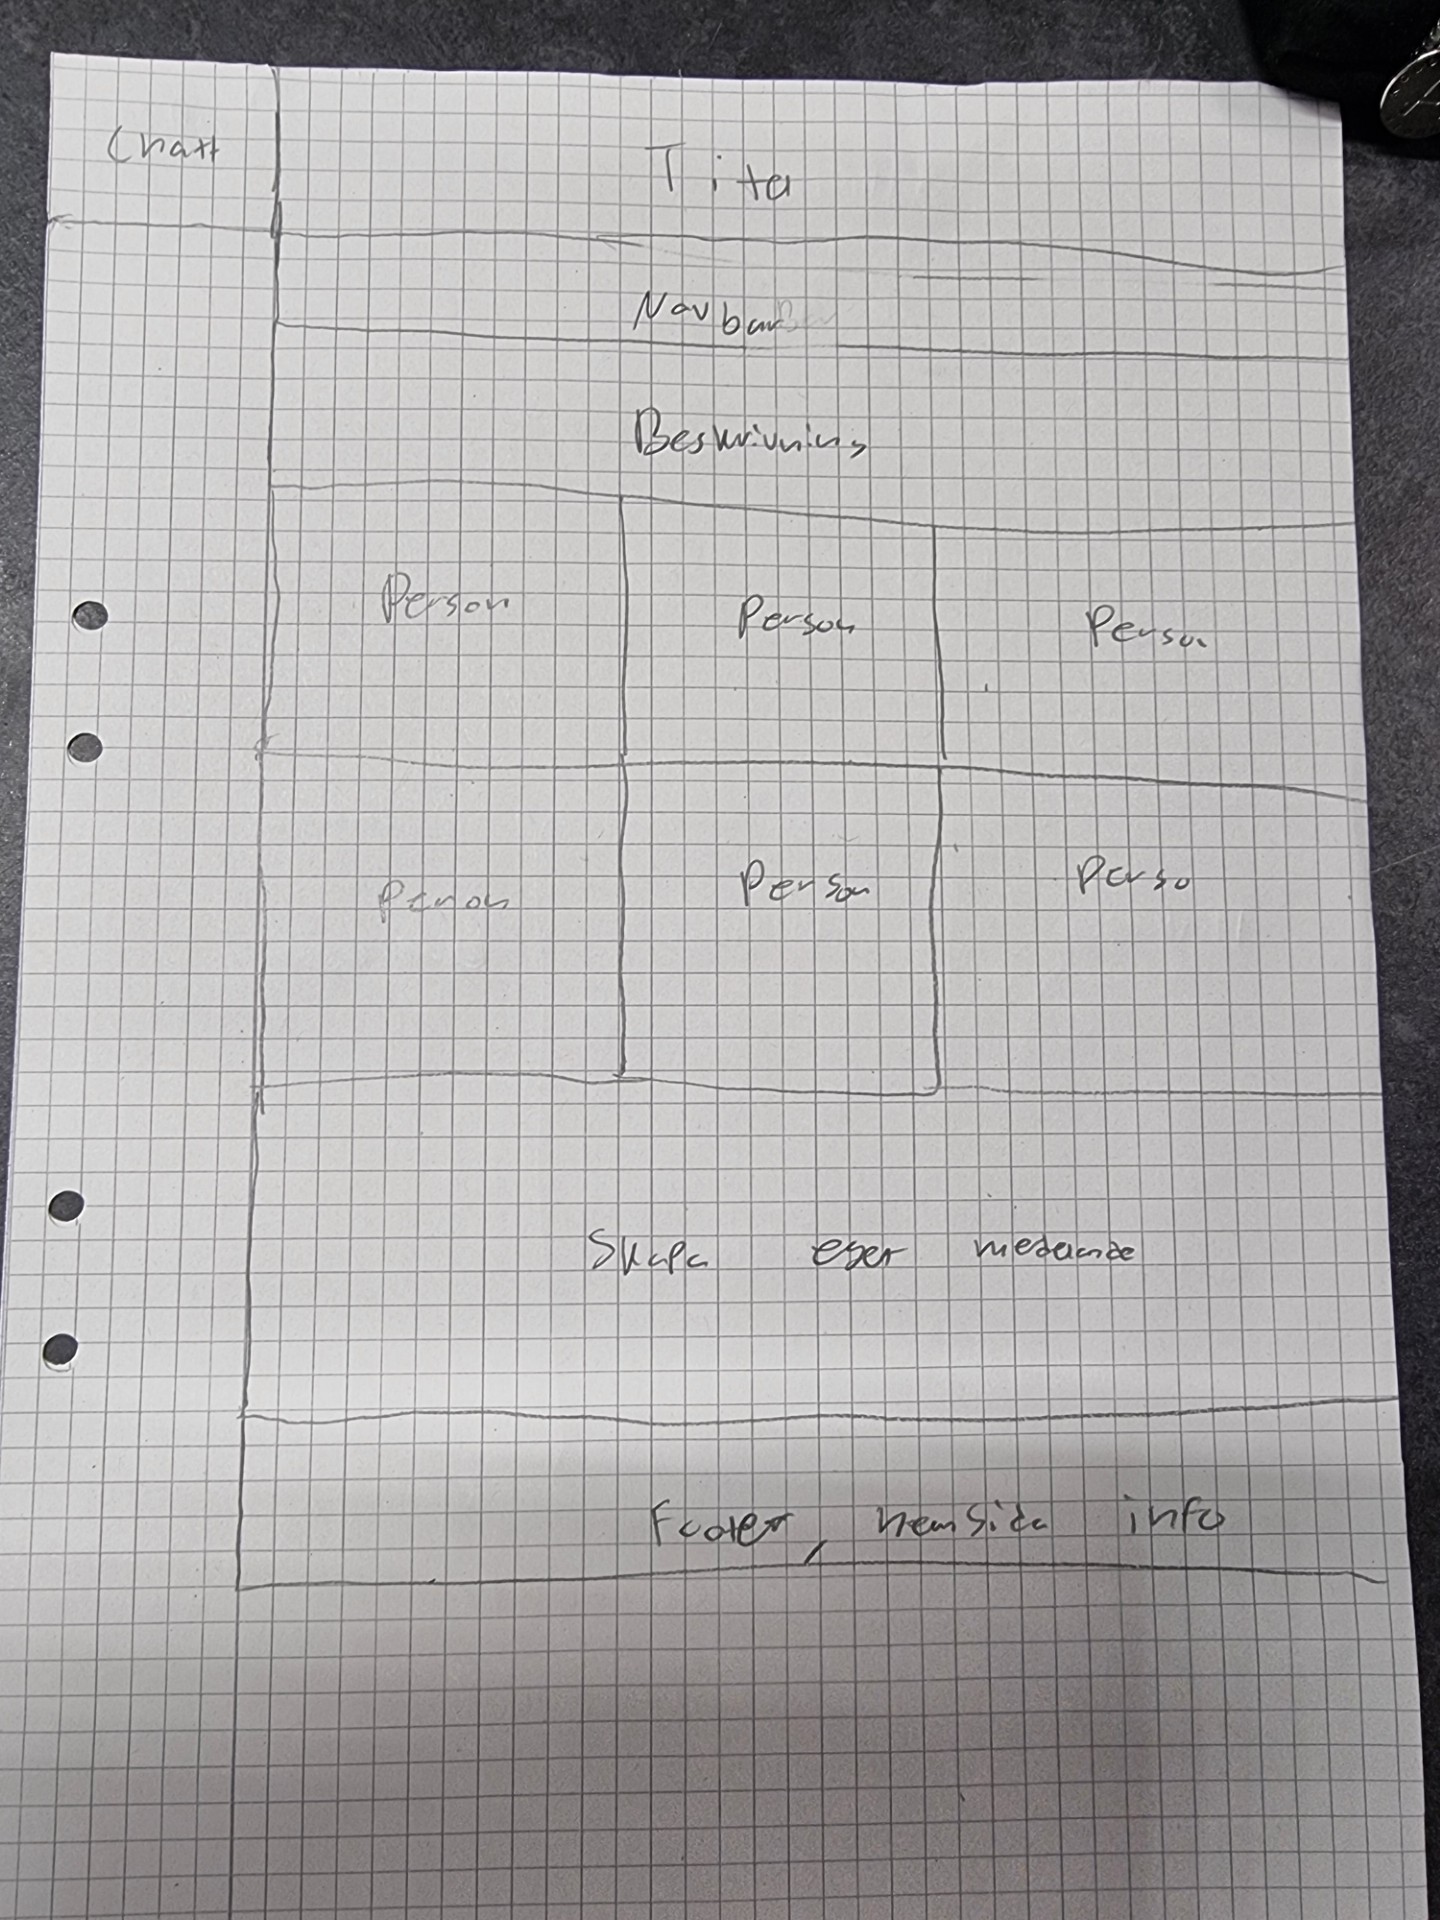 Chatt
Titel
Navbar
Beskrivning
Person Person Person
Person Person Perso
Skapa eget medelande
Footer, hemsida info